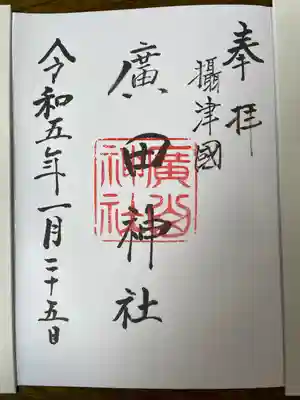 奉拝
攝津國
廣田神社
廣田神社
令和五年一月二十五日